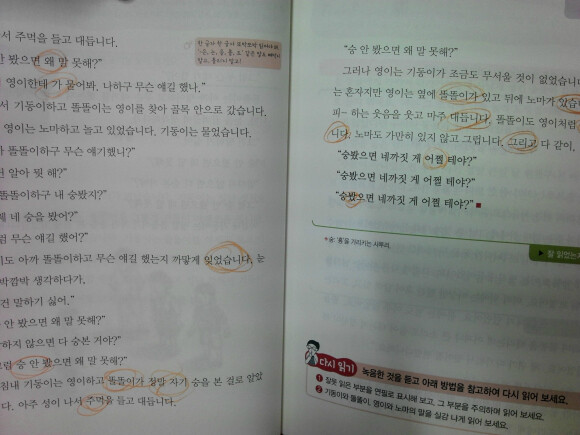 서 주먹을 들고 대듭니다.
안 봤으면 왜 말 못해?"
영이한테 가 물어봐. 나하구 무슨 얘길 했나."
서 기동이하고 똘똘이는 영이를 찾아 골목 안으로 갔습니다.
영이는 노마하고 놀고 있었습니다. 기동이는 물었습니다.
가 똘똘이하구 무슨 얘기했니?"
건 알아 뭣 해?"
똘똘이하구 내 숭봤지?"
네 숭을 봤어?"
무슨 얘길 했어?"
도 아까 똘똘이하고 무슨 얘길 했는지 까맣게 잊었습니다. 눈
깜박깜박 생각하다가,
건 말하기 싫어."
안 봤으면 왜 말 못해?"
하지 않으면 다 숭본 거야?"
숭 안 봤으면 왜 말 못해?"
침내 기동이는 영이하고 똘똘이가 정말 자기 숭을 본 걸로 알았
다. 아주 성이 나서 주먹을 들고 대듭니다.
한 글자 한 글자 또박또박 읽어야 해.
"숭 안 봤으면 왜 말 못해?"
그러나 영이는 기동이가 조금도 무서울 것이 없었습니
는 혼자지만 영이는 옆에 똘똘이가 있고 뒤에 노마가 있습
피- 하는 웃음을 웃고 마주 대듭니다. 똘똘이도 영이처럼
니다. 노마도 가만히 있지 않고 그럽니다. 그리고 다 같이,
"숭봤으면 네까짓 게 어쩔 테야?"
"숭봤으면 네까짓 게 어쩔 테야?"
"숭봤으면 네까짓 게 어쩔 테야?"■
*숭: '흉'을 가리키는 사투리.
▶ 잘 읽었는지
다시 읽기 녹음한 것을 듣고 아래 방법을 참고하여 다시 읽어 보세요.
❶ 잘못 읽은 부분을 연필로 표시해 보고, 그 부분을 주의하며 읽어 보세요.
❷ 기동이와 똘똘이, 영이와 노마의 말을 실감 나게 읽어 보세요.